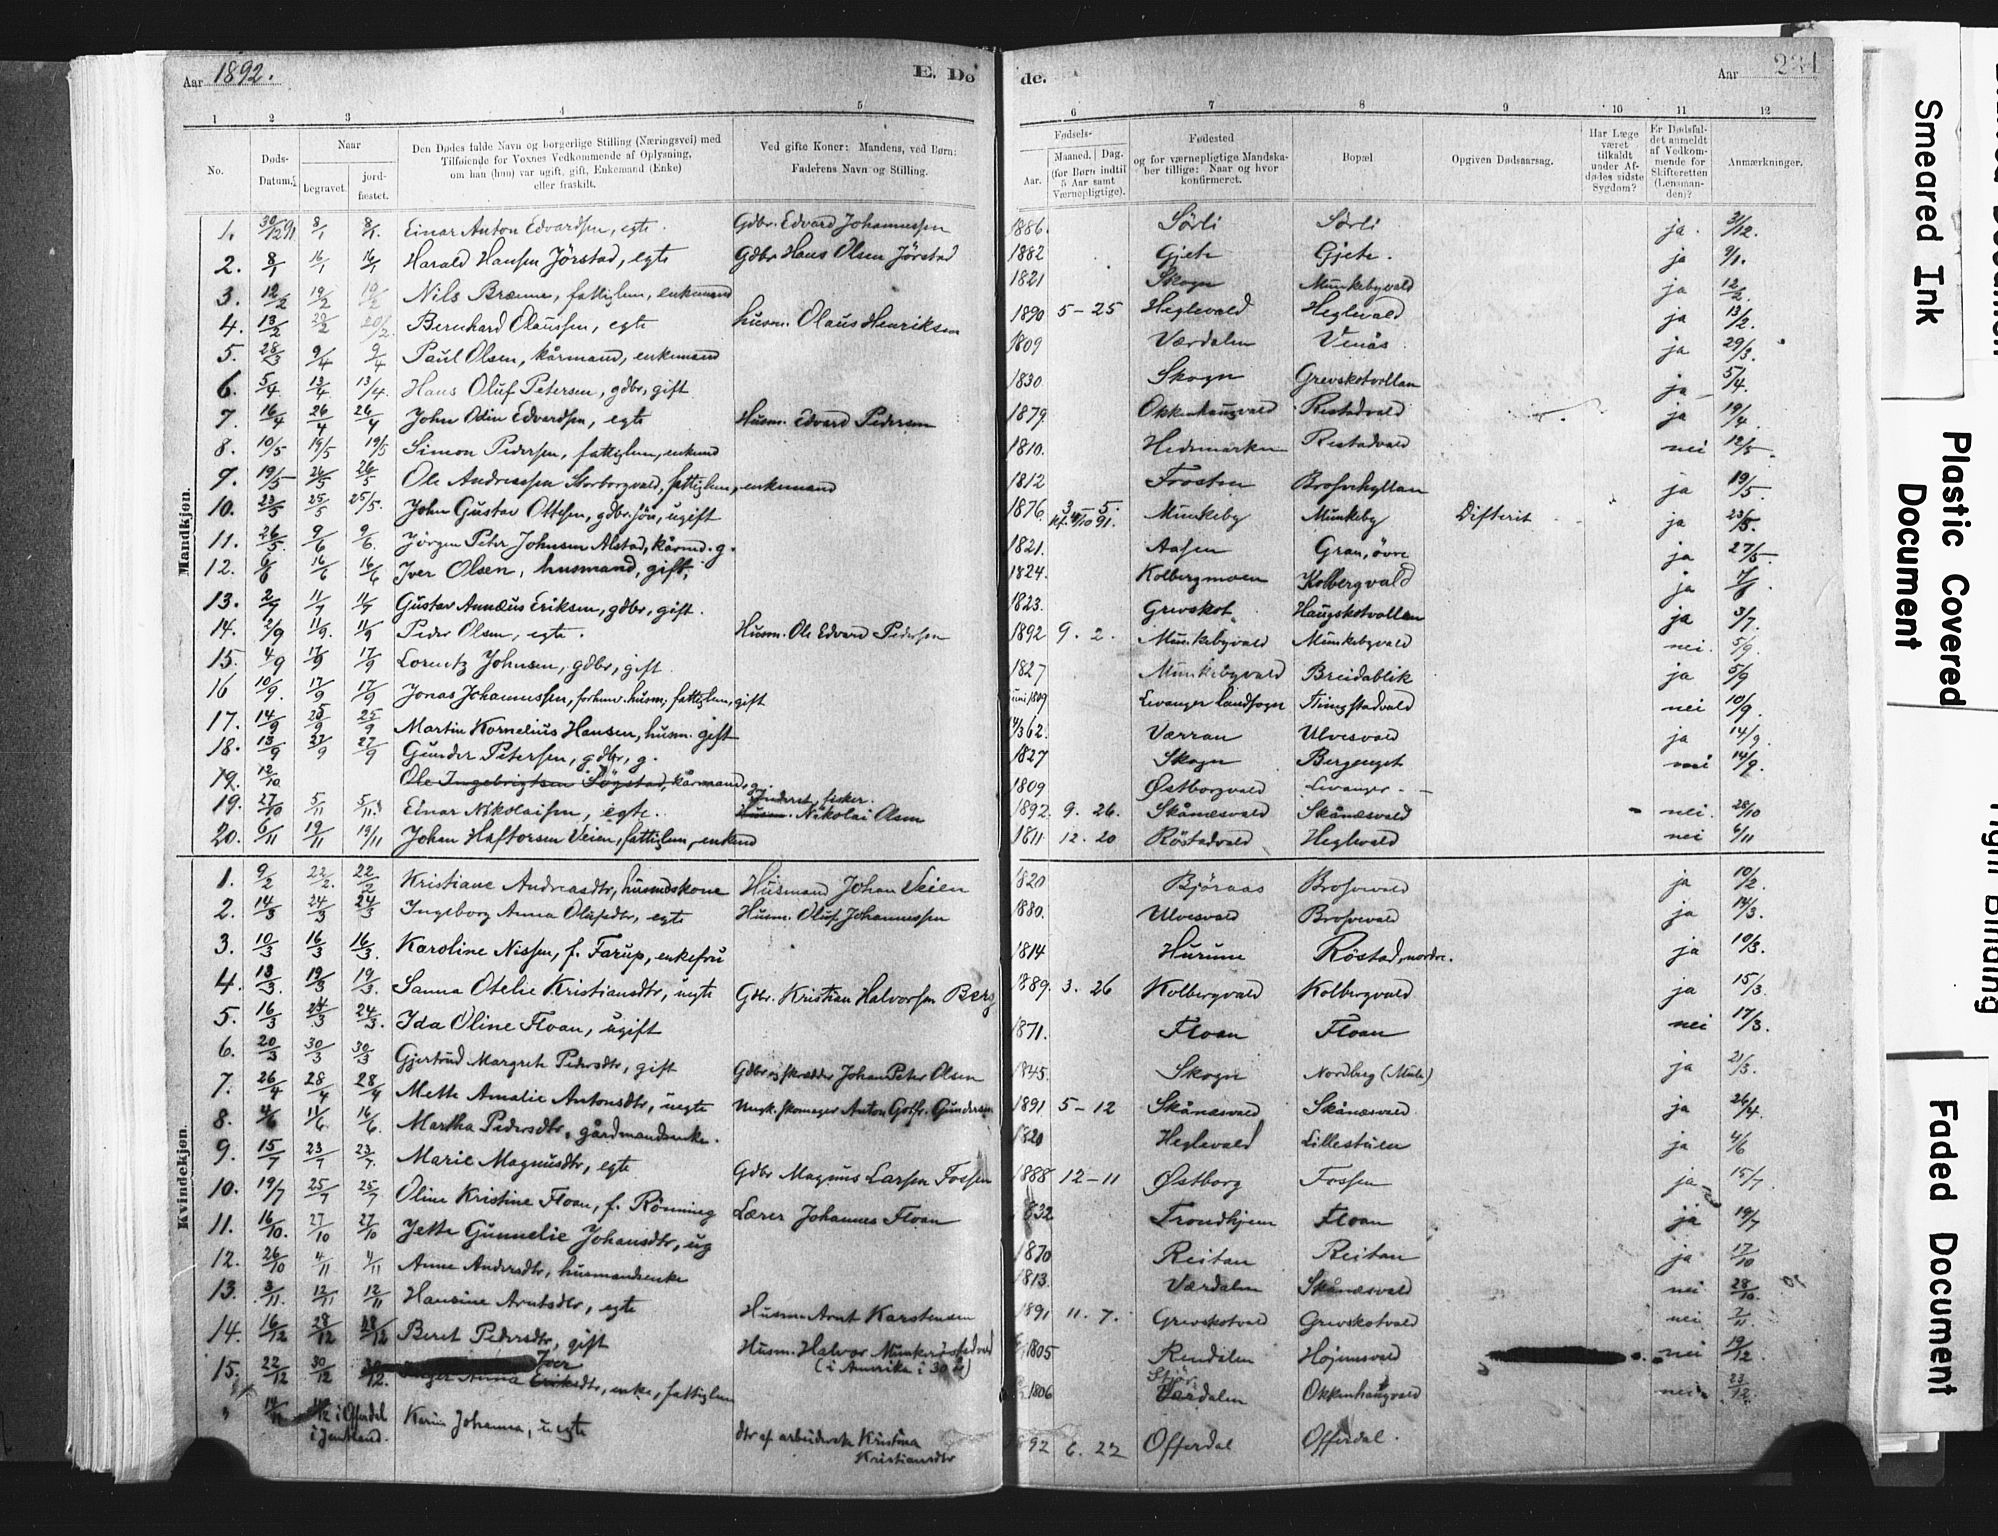 Aar 1892. E. Dø
1 2 3 4 5
No. Døds-Datum. Naar begravet. jord-fæstet. Den Dødes fulde Navn og borgerlige Stilling (Næringsvei) med Tilføiende for Voxnes Vedkommende af Oplysning, om han (hun) var ugift, gift, Enkemand (Enke) eller fraskilt. Ved gifte Koner: Mandens, ved Børn: Faderens Navn og Stilling.
Mandkjøn.
1. 30/12 91 8/1 8/1. Einar Anton Edvardsen, egte. Gdbr. Edvard Johannessen
2. 8/1 16/1 16/1 Harald Hansen Jörstad, egte Gdbr Hans Olsen Jörstad
3. 12/2 19/2 19/2 Nils Brænne, fattiglem, enkemand
4. 13/2 20/2 20/2. Bernhard Olaussen, egte husm. Olaus Henriksen
5. 28/3 9/4 9/4 Paul Olsen, kårmand, enkemand
6. 5/4. 13/4 13/4. Hans Oluf Petersen, gdbr, gift
7. 16/4 26/4 26/4 John Odin Edvardsen, egte Husm. Edvard Pedersen
8. 10/5 19/5 19/5 Simon Pedersen, fattiglem, enkemd
9. 19/5 26/5 26/5 Ole Andreassen Storborgvald, fattiglem, enkemand
10. 23/5 25/5 25/5. John Gustav Ottesen, gdbr.sön, ugift
11. 26/5. 9/6 9/6. Jörgen Peter Johnsen Alstad, kårmd. g.
12. 6/6 16/6 16/6 Iver Olsen, husmand, gift,
13. 2/7 11/7 11/7 Gustav Annæus Eriksen, gdbr, gift.
14. 2/9 11/9. 11/9 Peder Olsen, egte. Husm. Ole Edvard Pedersen
15. 4/9 17/9 17/9 Lorentz Johnsen, gdbr, gift.
16 10/9. 17/9 17/9 Jonas Johannessen, forhenv. husm, fattiglem, gift
17. 14/9 25/9 25/9 Martin Kornelius Hansen, husm. gift
18. 13/9 27/9 27/9 Gunder Petersen, gdbr, g.
19. 12/10 Ole Ingebrigtsen Søgstad, kårmand, g.
19. 27/10 5/11 5/11. Einar Nikolaisen, egte. Husm. Inderst, fisker. Nikolai Olsen
20. 6/11 19/11 19/11 Johan Haftorsen Veien, fattiglem, enkemd
Kvindekjøn.
1. 9/2 22/2. 22/2 Kristiane Andreasdtr, husmdskone Husmand Johan Veien
2. 14/3 24/3 24/3 Ingeborg Anna Olufsdtr, egte Husm. Oluf Johannessen
3. 10/3 16/3 16/3. Karoline Nissen, f. Farup, enkefru
4. 13/3. 19/3 19/3. Sanna Otelie Kristiansdtr, uegte Gdbr. Kristian Halvorsen Berg
5. 16/3 24/3 24/3. Ida Oline Floan, ugift
6. 20/3 30/3 30/3 Gjertrud Margrete Pedersdtr, gift Gdbr og skrædder Johan Peter Olsen
7. 26/4 28/4 28/4 Mette Amalie Antonsdtr, uegte Ungk. skomager Anton Gotfr. Gundersen
8. 4/6 11/6 16/6. Martha Pedersdtr, gårdmandsenke.
9. 15/7 23/7 23/7. Marie Magnusdtr, egte Gdbr Magnus Larsen Fossen
10. 19/7 25/7 25/7 Oline Kristine Floan, f. Rönning Lærer Johannes Floan
11. 16/10. 27/10 27/10 Jette Gunnelie Johansdtr, ug
12. 26/10 4/11 4/11 Anne Andersdtr, husmandsenke
13. 3/11. 12/11 12/11 Hansine Arntsdtr, egte Husm Arnt Karstensen
14. 16/12 28/12 28/12 Beret Pedersdtr, gift Husm. Halvor
(i Amerika i 30 år)
15. 22/12 30/12 30/12. Iver enke, fattiglem
" i Offerdal i Jemtland. Karin Johanna, uegte dtr af arbeiderske Kristina Kristiansdtr
de. Aar 231
6 7 8 9 10 11 12
Fødsels- Aar. Maaned. Dag. (for Børn indtil 5 Aar samt Værnepligtige). Fødested og for værnepligtige Mandskaber tillige: Naar og hvor konfirmeret. Bopæl. Opgiven Dødsaarsag. Har Læge været tilkaldt under Afdødes sidste Sygdom? Er Dødsfaldet anmeldt af Vedkommende for Skifteretten (Lensmanden)? Anmærkninger.
1886. Sörli Sörli ja. 31/12.
1882 Gjete Gjete. ja 9/1.
1821 Skogn Munkebyvald ja 12/2.
1890 5-25 Heglevald Heglevald ja 13/2.
1809 Værdalen Venås ja 29/3.
1830 Skogn Grevskotvollan ja 5/4.
1879. Okkenhaugvald Reistadvald ja 19/4.
1810. Hedemarken Reistadvald nei 12/5.
1812 Frosten ja 19/5.
1876 3-5. kf. 4/10 91. Munkeby Munkeby Difterit ja 23/5.
1821. Aasen Gran, övre ja 27/5.
1824. Kolbergmoen Kolbergvald ja 7/6.
1823. Grevskot Haugskotvollan ja 3/7.
1892 9. 2. Munkebyvald Munkebyvald nei. 5/9.
1827 Munkebyvald Breidablik ja 5/9
1809 Levanger landsogn Tingstadvald nei 10/9.
62. Værran Ulvesvald ja 14/9.
1827 Skogn Bergenget nei 14/9.
1809 Østborgvald Levanger
1892 9. 26. Skånæsvald Skånæsvald nei. 28/10
1811 12. 20 Röstadvald Heglevald nei 6/11
1820 Björaas ja 10/2.
1880. Ulvesvald ja 14/3.
1814 Hurum Röstad, nordre. ja 10/3.
1889. 3. 26 Kolbergvald Kolbergvald ja 15/3.
1871. Floan Floan nei 17/3.
1845. Skogn Nordberg (Mule) ja 21/3.
1891 5-12 Skånæsvald Skånæsvald ja 26/4.
1820 Heglevald Lillestuen ja 4/6
1888 12-11 Østborg Fossen ja 15/7.
1832 Trondhjem Floan ja 19/7
1870 Reitan Reitan ja 17/10
1813. Værdalen Skånæsvald nei 28/10.
1891 11. 7. Grevskotvald Grevskotvald nei 7/11.
1805 Rendalen Höjemsvald nei 19/12.
1806 Stjör Værdalen Okkenhaugvald nei 23/12.
1892 6. 22 Offerdal Offerdal.
Smeared Ink
Plastic Covered Document
Faded Document
Tight Binding